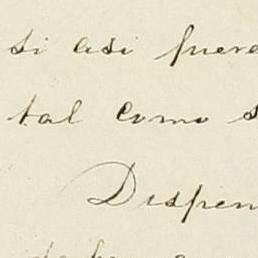 si asi fuere
tal como s
Dispen